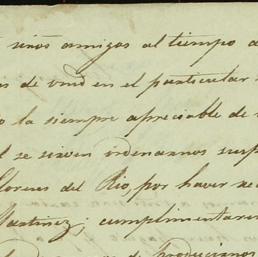 sinos amigos al tiempo d
s de vmd en el particular
o la siempre apreciable de
l se sirven ordenarnos susp
lores del Rio, por haver re
Martinez; cumplimentare